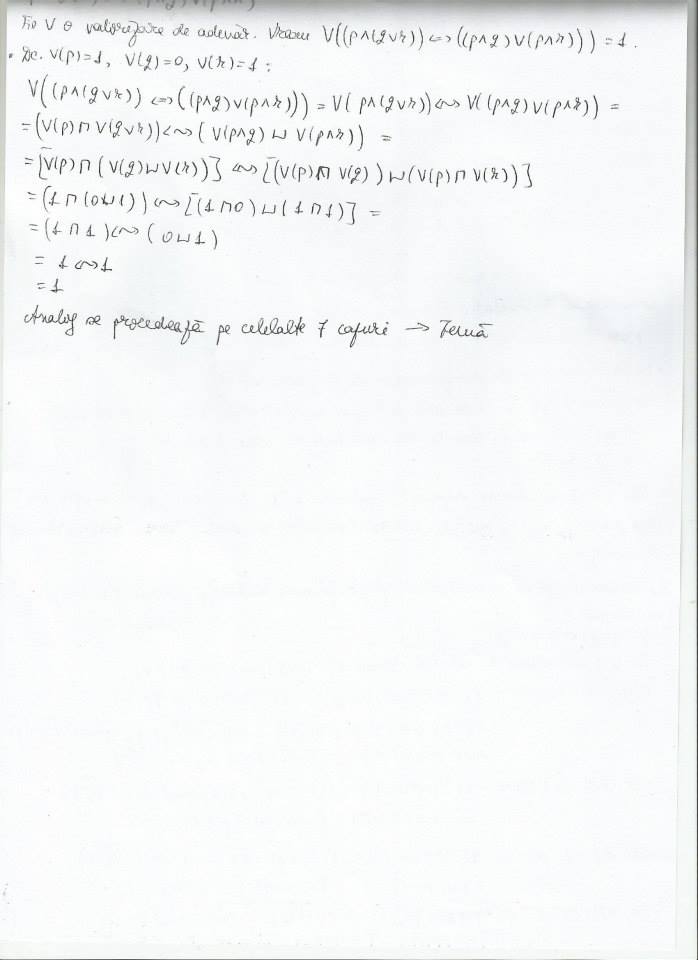 Fie V o valorizare de adevăr. Vream V((p∧(q∨r)) ⇔ ((p∧q)∨(p∧r))) = 1.
• Dc. V(p)=1, V(q)=0, V(r)=1 :
V((p∧(q∨r)) ⇔ ((p∧q)∨(p∧r))) = V(p∧(q∨r)) ⇜⇝ V((p∧q)∨(p∧r)) =
= (V(p) ⊓ V(q∨r)) ⇜⇝ (V(p∧q) ⊔ V(p∧r)) =
= [V(p) ⊓ (V(q) ⊔ V(r))] ⇜⇝ [(V(p) ⊓ V(q)) ⊔ (V(p) ⊓ V(r))]
= (1 ⊓ (0 ⊔ 1)) ⇜⇝ [(1 ⊓ 0) ⊔ (1 ⊓ 1)] =
= (1 ⊓ 1) ⇜⇝ (0 ⊔ 1)
= 1 ⇜⇝ 1
= 1
Analog se procedează pe celelalte 7 cazuri → Temă